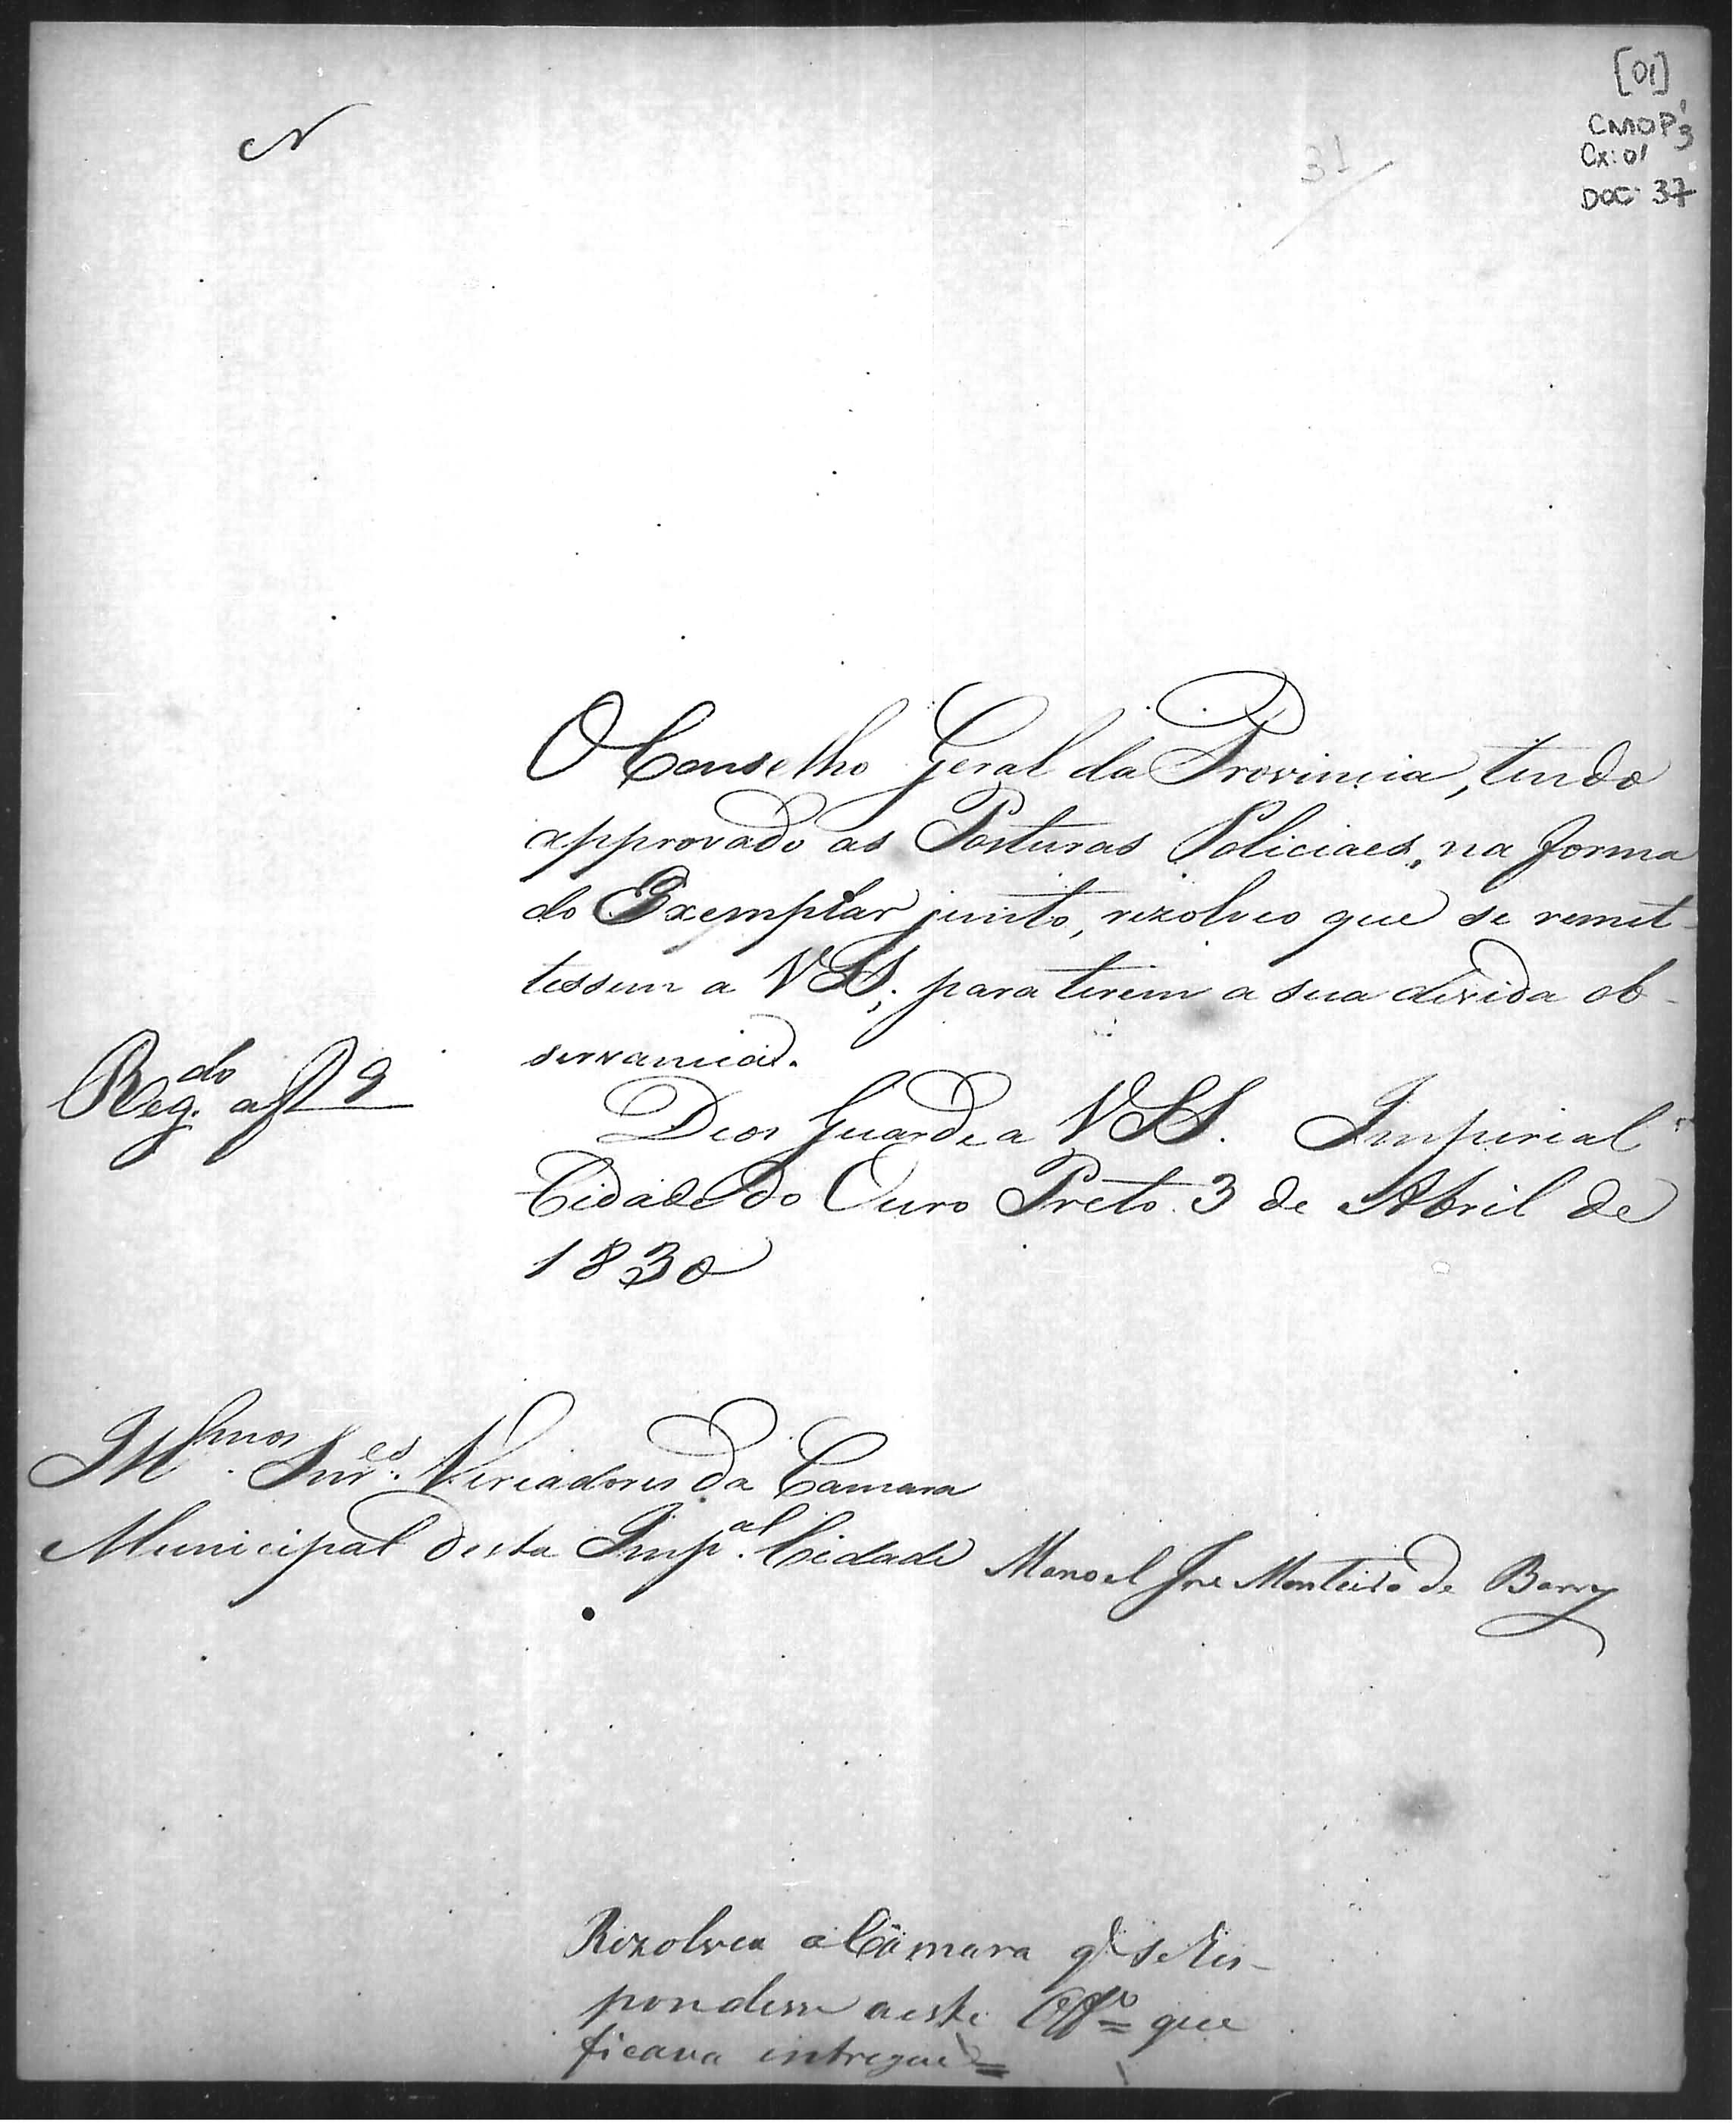 [01]
CMOP 3
Cx: 01
DOC 37
31
N
O Conselho Geral da Provincia, tendo
approvado as Posturas Policiaes, na forma
do Exemplar junto, rezolveo que se remet-
tessem a VSS; para terem a sua devida ob-
servancia.
Reg.do a f 9
Deos Guarde a VSS. Imperial
Cidade do Ouro Preto 3 de Abril de
1830
Illmos. Snres. Vereadores da Camara
Municipal desta Imp.al Cidade
Manoel Jose Monteiro de Barros
Rezolveo a Câmara q' se Res-
pondesse a este Offº = que
ficava entregue =